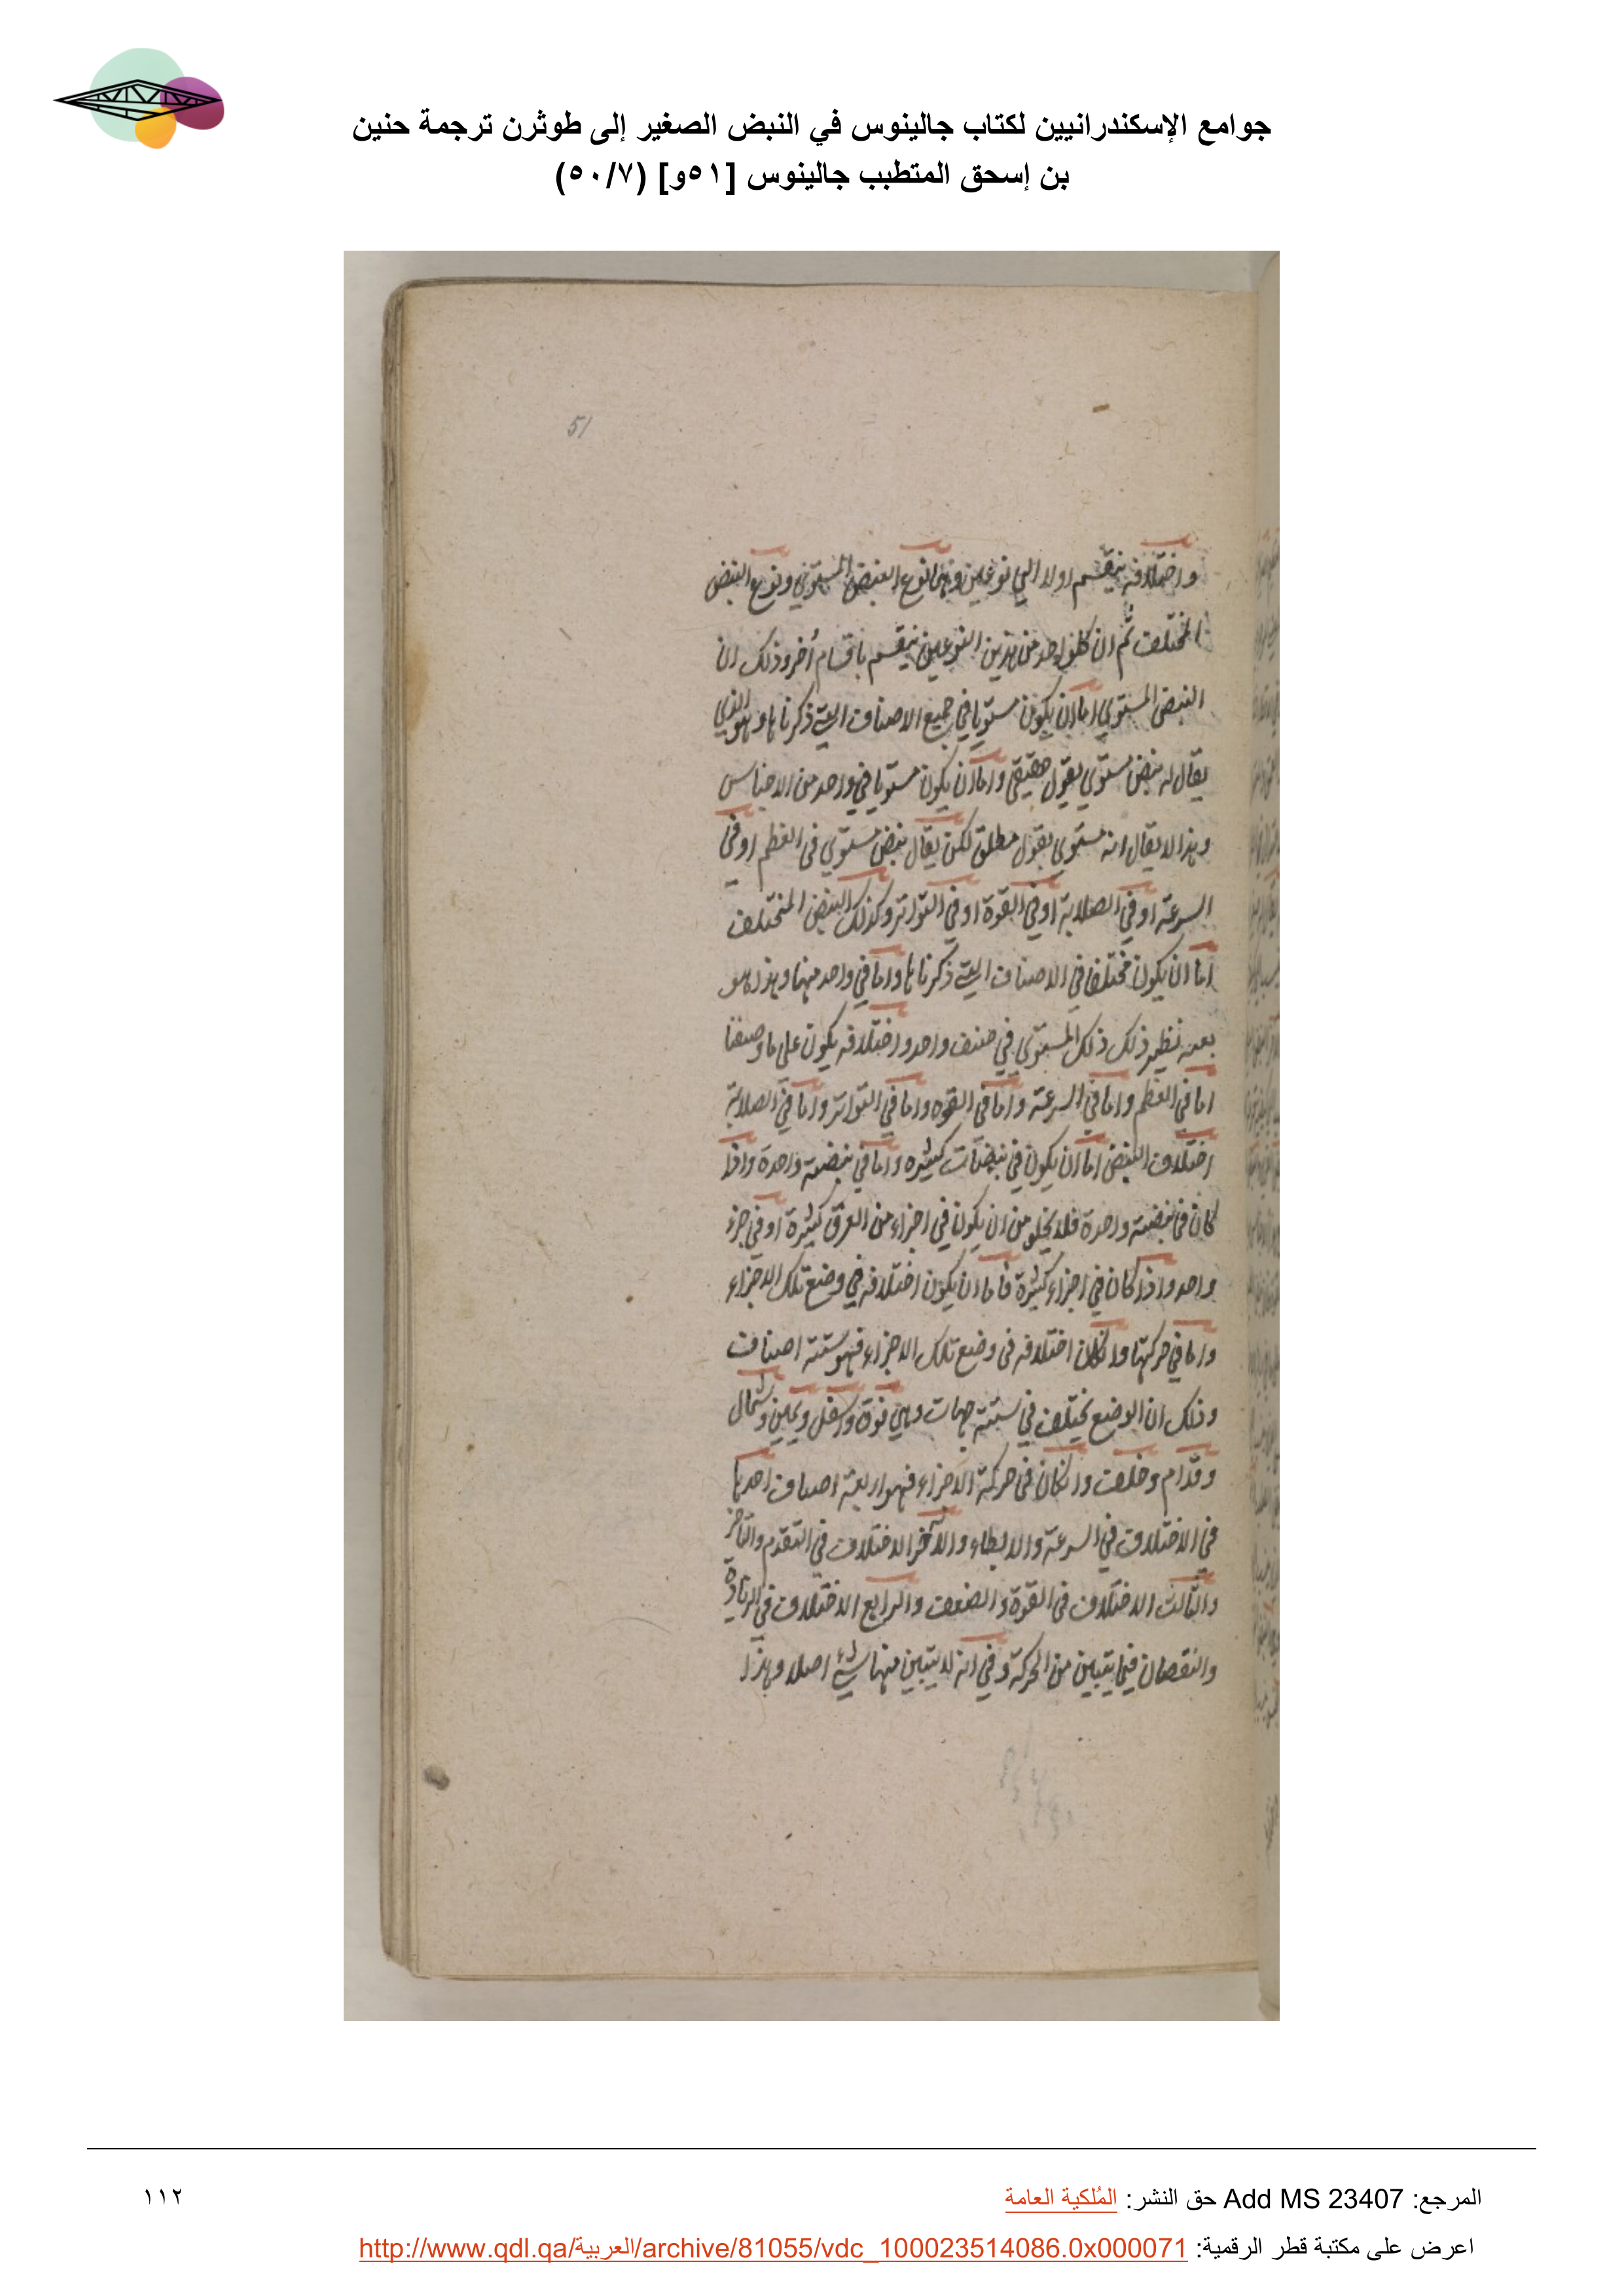 جوامع الإسكندرانيين لكتاب جالينوس في النبض الصغير إلى طوثرن ترجمة حنين
بن إسحق المتطبب جالينوس [٥١و] (٥٠/٧)
51
واختلافه ينقسم اولا الي نوعين وهما نوع النبض المستوي ونوع النبض
المختلف ثم ان كل واحد من هذين النوعين ينقسم باقسام أخر وذلك ان
النبض المستوي اما ان يكون مستويا في جميع الاصناف التي ذكرناها وهو الذي
يقال له نبض مستوي بقول حقيقي واما ان يكون مستويا في واحد من الاجناس
وهذا لا يقال انه مستوي بقول مطلق لكن يقال نبض مستوي في العظم او في
السرعة او في الصلابة او في القوة او في التواتر وكذلك النبض المختلف
اما ان يكون مختلفا في الاصناف التي ذكرناها واما في واحد منها وهذا هو
نظير ذلك ذلك المستوي في صنف واحد واختلافه يكون على ما وصفنا
اما في العظم واما في السرعة واما في القوه واما في التواتر واما في الصلابة
اختلاف النبض اما ان يكون في نبضات كثيره واما في نبضة واحدة واذا
كان في نبضة واحدة فلا يخلو من ان يكون في اجزاء من العرق كثيرة او في جزء
واحد واذا كان في اجزاء كثيرة فاما ان يكون اختلافه في وضع تلك الاجزاء
واما في حركتها وان كان اختلافه في وضع تلك الاجزاء فهو ستة اصناف
وذلك ان الوضع يختلف في ستة جهات وهي فوق واسفل ويمين وشمال
وقدام وخلف وان كان في حركة الاجزاء فهو اربعة اصناف احدها
في الاختلاف في السرعة والابطاء والآخر الاختلاف في التقدم والتأخر
والثالث الاختلاف في القوة والضعف والرابع الاختلاف في الزيادة
والنقصان فيما يتبين من الحركة وفي انه لا يتبين منها شيء اصلا وهذا
المرجع: Add MS 23407 حق النشر: المُلكية العامة
١١٢
اعرض على مكتبة قطر الرقمية: http://www.qdl.qa/العربية/archive/81055/vdc_100023514086.0x000071